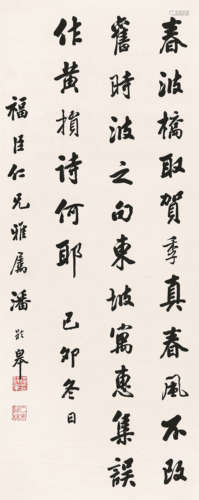 春波橋取賀季真春風不改
舊時波之句東坡寓惠集誤
作黄損詩何耶 己卯冬日
福臣仁兄雅屬 潘齡皋